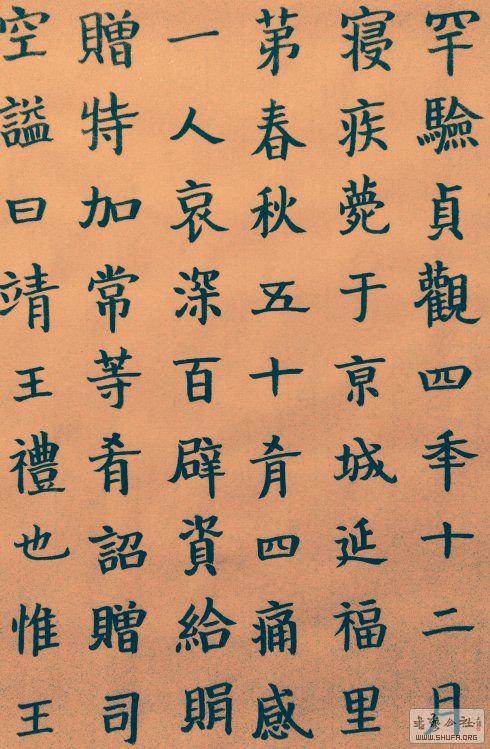 罕驗貞觀四年十二月
寢疾薨于京城延福里
第春秋五十有四痛感
一人哀深百辟資給賵
贈特加常等有詔贈司
空謚曰靖王禮也惟王
書藝公社
WWW.SHUFA.ORG